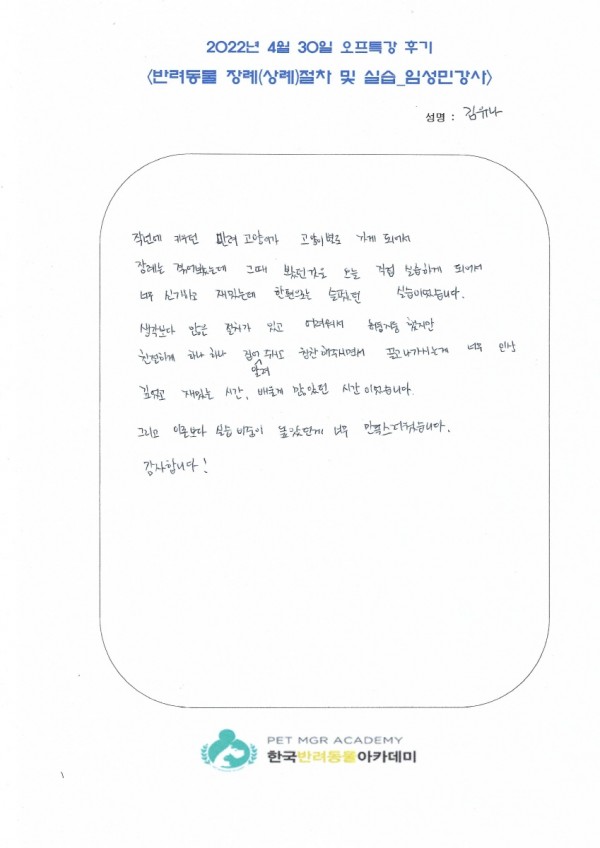 2022년 4월 30일 오프특강 후기
<반려동물 장례(상례)절차 및 실습_임성민강사>
성명 : 김유나
작년에 키우던 반려 고양이가 고양이별로 가게 되어서
장례는 겪어봤는데 그때 봤던걸로 오늘 직접 실습하게 되어서
너무 신기하고 재밌는데 한편으로는 슬펐던 실습이었습니다.
생각보다 많은 절차가 있고 어려워서 허둥거둥 했지만
친절하게 하나 하나 집어 주시고 칭찬해주시면서 끌고나가시는게 너무 인상
알려
깊었고 재밌는 시간, 배울게 많았던 시간이었습니다.
그리고 이론보다 실습 비중이 높았던게 너무 만족스러웠습니다.
감사합니다!
PET MGR ACADEMY
한국반려동물아카데미